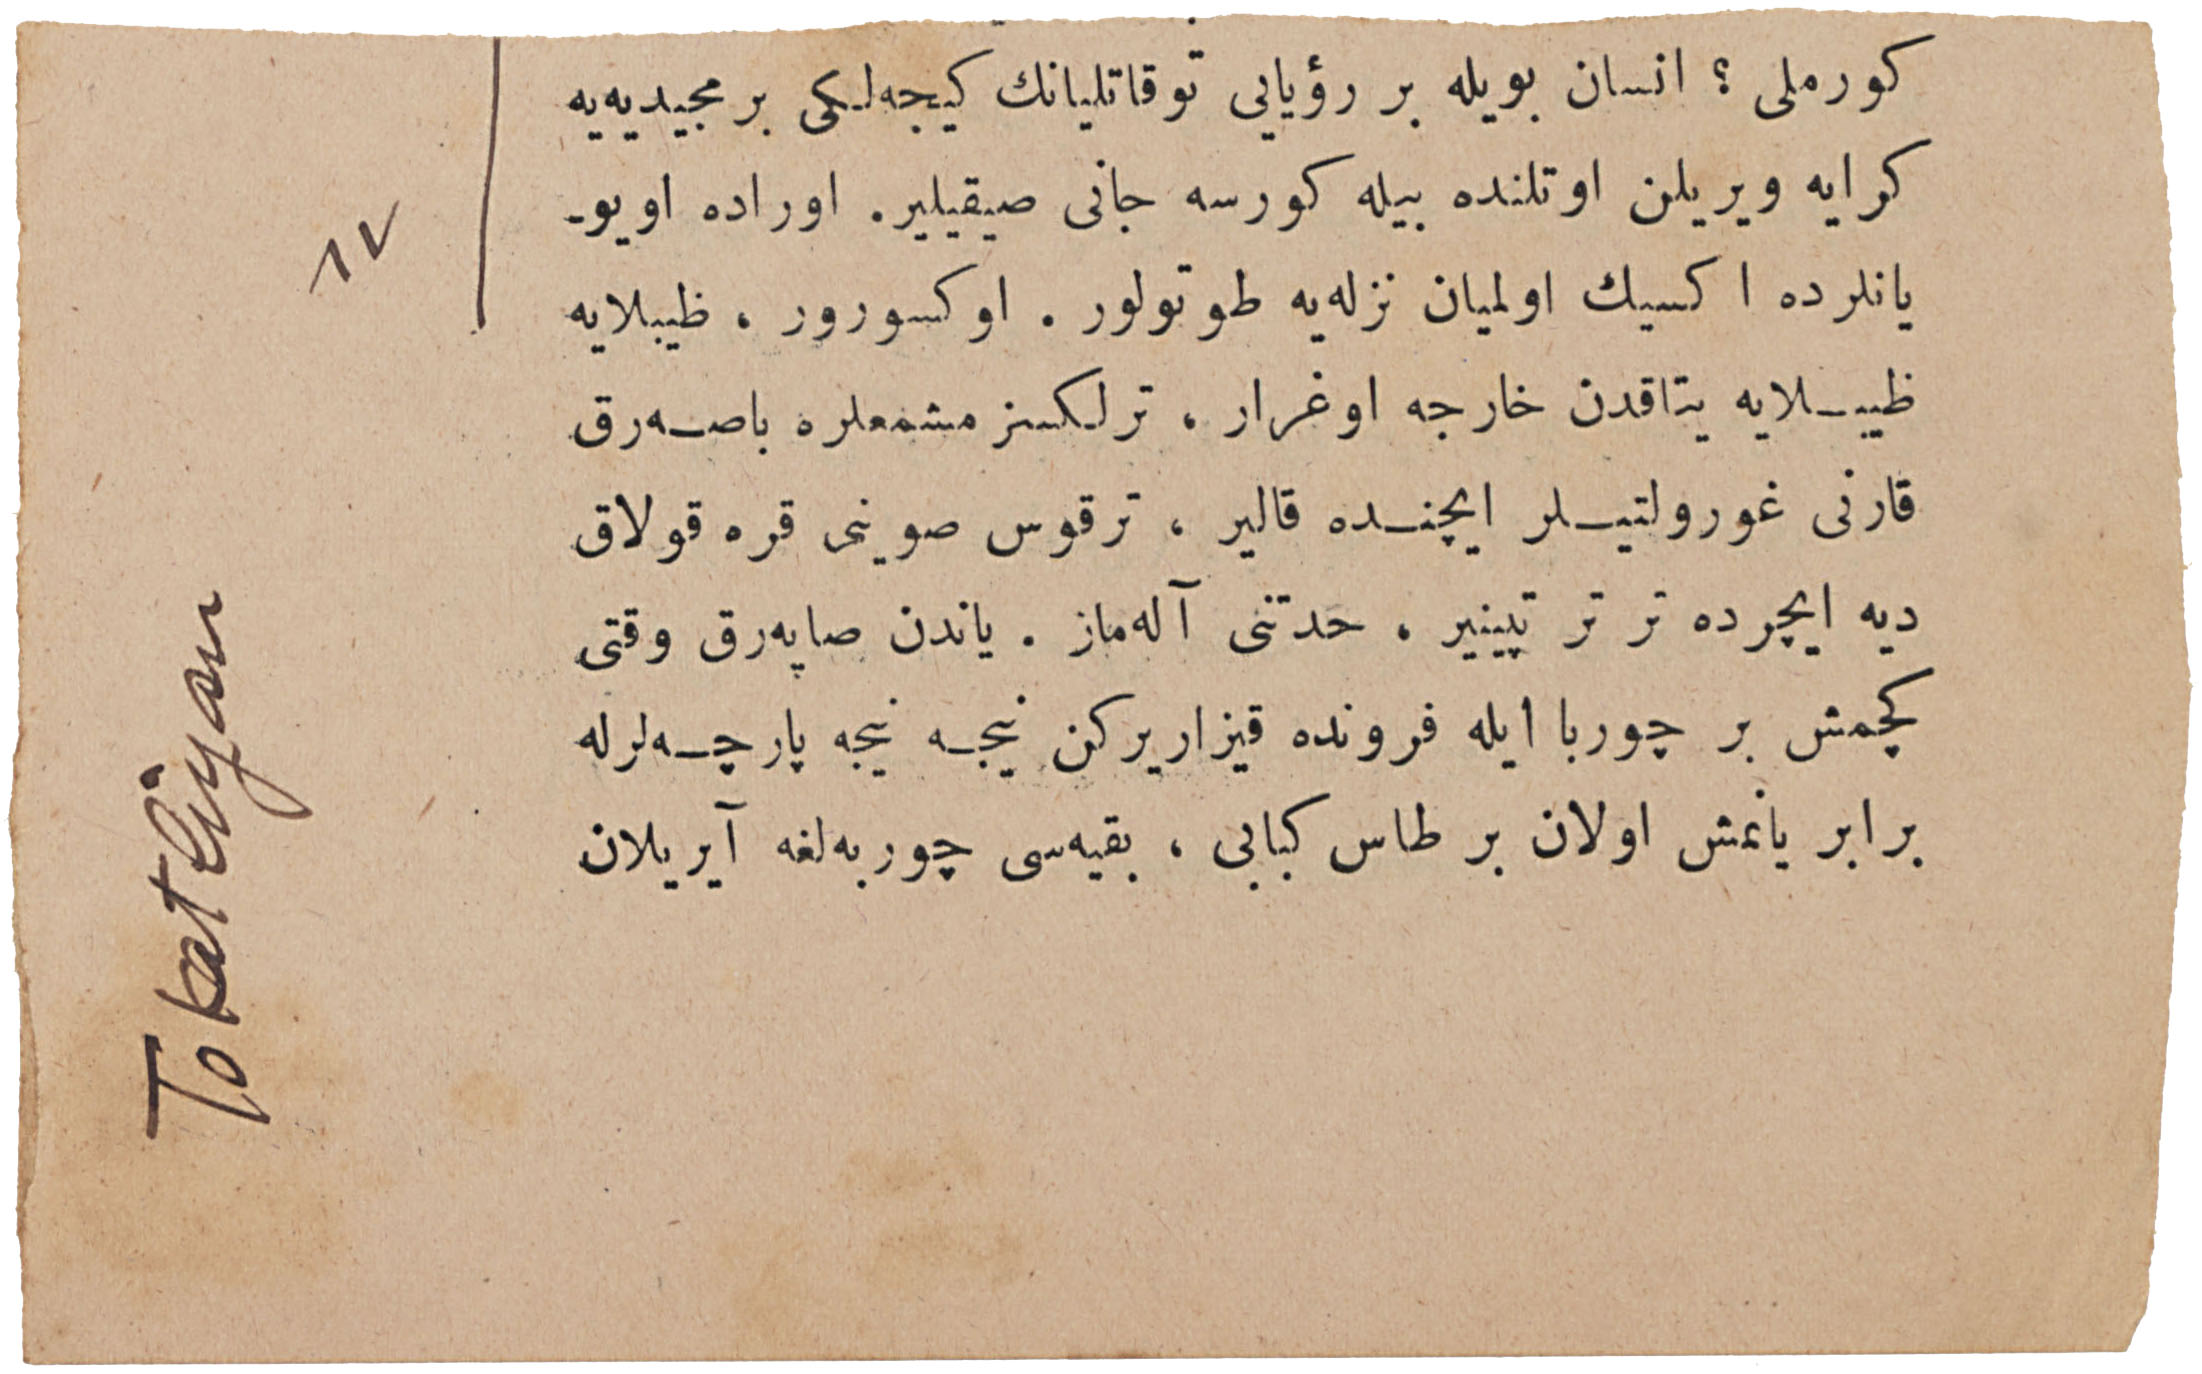 كورملی ؟ انسان بویله بر رؤیایی توقاتلیانك كیجه‌لكی بر مجیدیه‌یه
كرایه ویریلن اوتلنده بیله كورسه جانی صیقیلیر. اوراده اویو-
یانلرده اكسیك اولمیان نزله‌یه طوتولور . اوكسورور ، ظیپلایه
ظیپلایه یتاقدن خارجه اوغرار ، ترلكسز مشمعلره باصه‌رق
قارنی غورولتیلر ایچنده قالیر ، ترقوس صوینی قره قولاق
دیه ایچرده تر تر تپینیر ، حدتنی آله‌ماز . یاندن صاپه‌رق وقتی
كچمش بر چوربا ایله فرونده قیزاریركن نیجه نیجه پارچه‌لرله
برابر یانمش اولان بر طاس كبابی ، بقیه‌سی چوربه‌لغه آیریلان
١٧
Tokatliyan